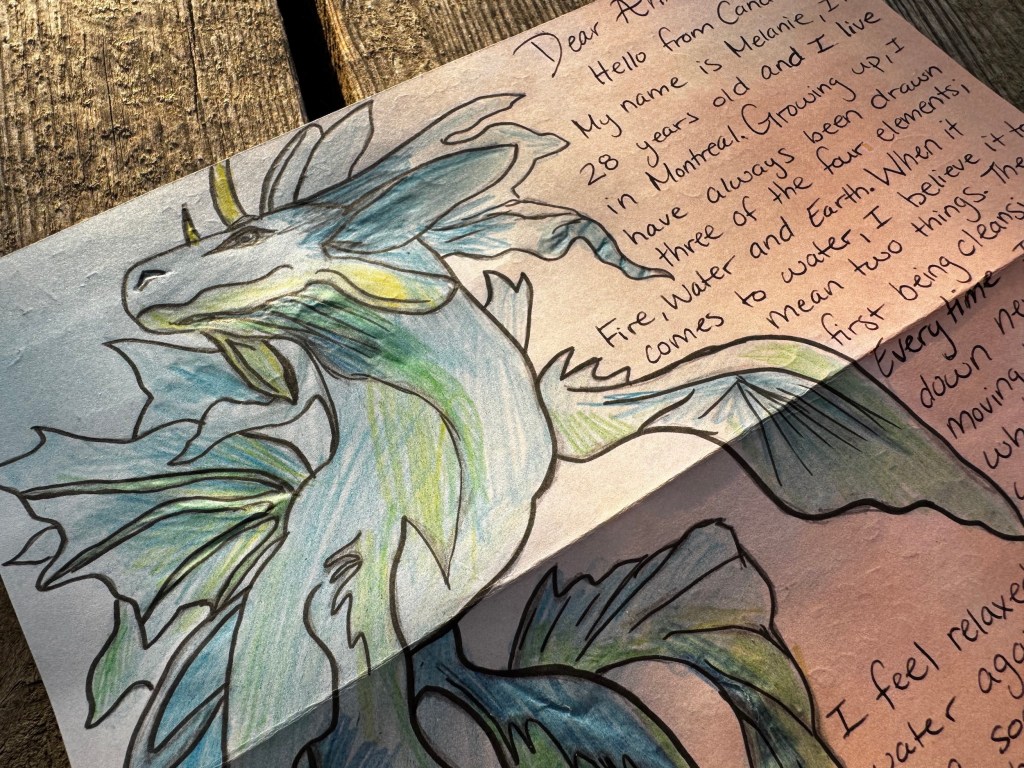 Dear
Hello from
My name is Melanie, I
28 years old and I live
in Montreal. Growing up, I
have always been drawn
three of the four elements,
Fire, Water and Earth. When it
comes to water, I believe it to
mean two things. The
first being
Every time
down
moving
I feel relaxed
water